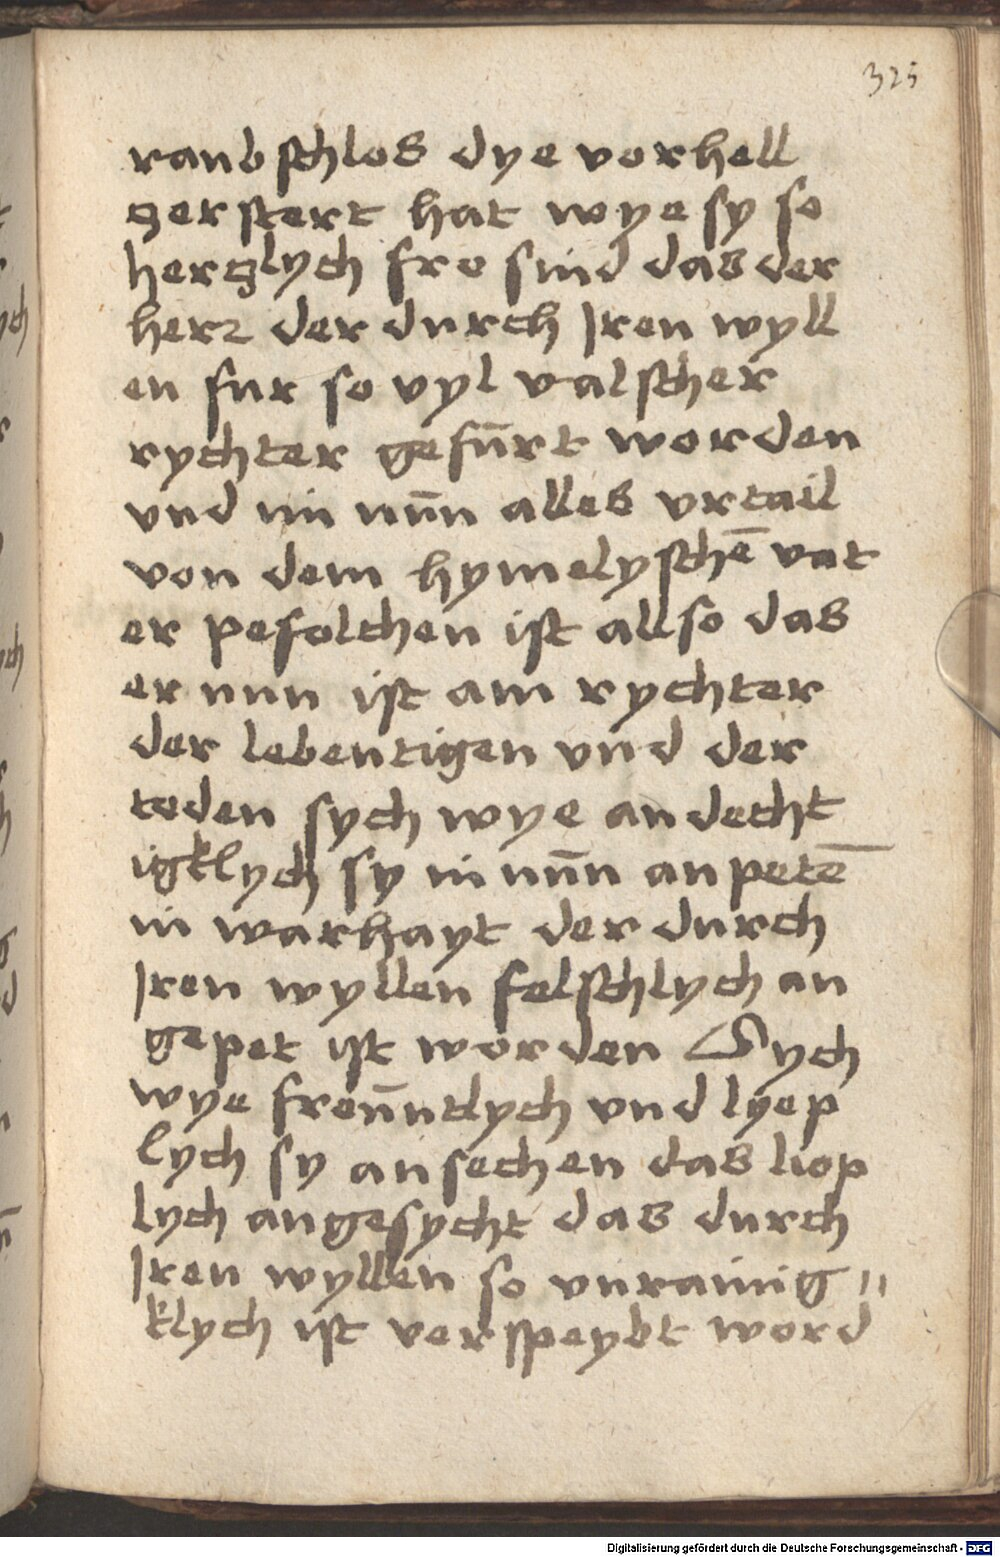 325
raubschlos dye vorhell
zerstert hat wye sy so
herzlych fro sind das der
herr der durch Iren wyll
en fur so vyl valscher
rychter gefūrt worden
vnd im nūn alles vrtail
von dem hymelyschē vat
er pefolchen ist allso das
er nun ist am rychter
der lebentigen vnd der
toden sych wye andecht
igklych sy in nūn anpetē
in warhayt der durch
Iren wyllen felschlych an
gepet ist worden Sych
wye freūntlych vnd lyep
lych sy ansechen das liop
lych angesycht das durch
Iren wyllen so vnrainig〃
klych ist verspeybt word
Digitalisierung gefördert durch die Deutsche Forschungsgemeinschaft - DFG